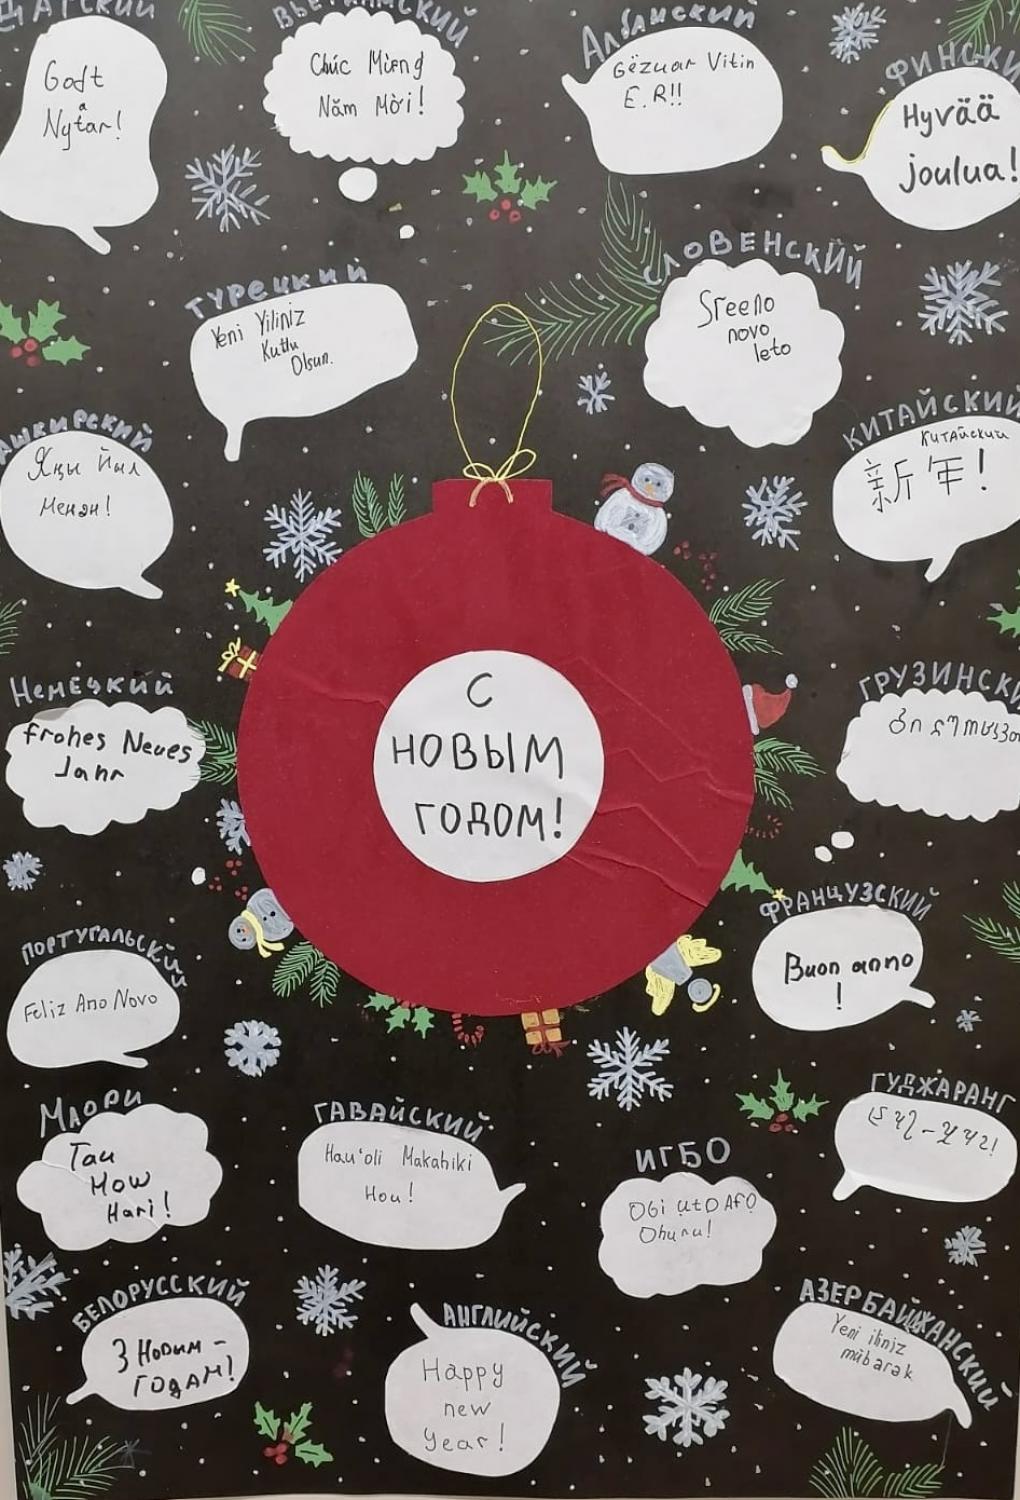 ДАТСКИЙ
Godt
Nytår!
ВЬЕТНАМСКИЙ
Chúc Mừng
Năm Mới!
Албанский
Gëzuar Vitin
E.R!!
ФИНСКИ
Hyvää
joulua!
ТУРЕЦКИЙ
Yeni Yiliniz
Kutlu
Olsun.
СЛОВЕНСКИЙ
Sreeno
novo
leto
АШКИРСКИЙ
Яңы Йыл
менән!
КИТАЙСКИЙ
Китайский
新年!
С
НОВЫМ
ГОДОМ!
НЕМЕЦКИЙ
Frohes Neues
Jahr
ГРУЗИНСКИ
ПОРТУГАЛЬСКИЙ
Feliz Ano Novo
ФРАНЦУЗСКИЙ
Buon anno
!
МАОРИ
Tau
Hou
Hari!
ГАВАЙСКИЙ
Hau'oli Makahiki
Hou!
ИГБО
Obi ụtọ Afọ
Ohuru!
ГУДЖАРАНГ
БЕЛОРУССКИЙ
З Новым -
годам!
АНГЛИЙСКИЙ
Happy
new
year!
АЗЕРБАЙДЖАНСКИЙ
Yeni iliniz
mübarək